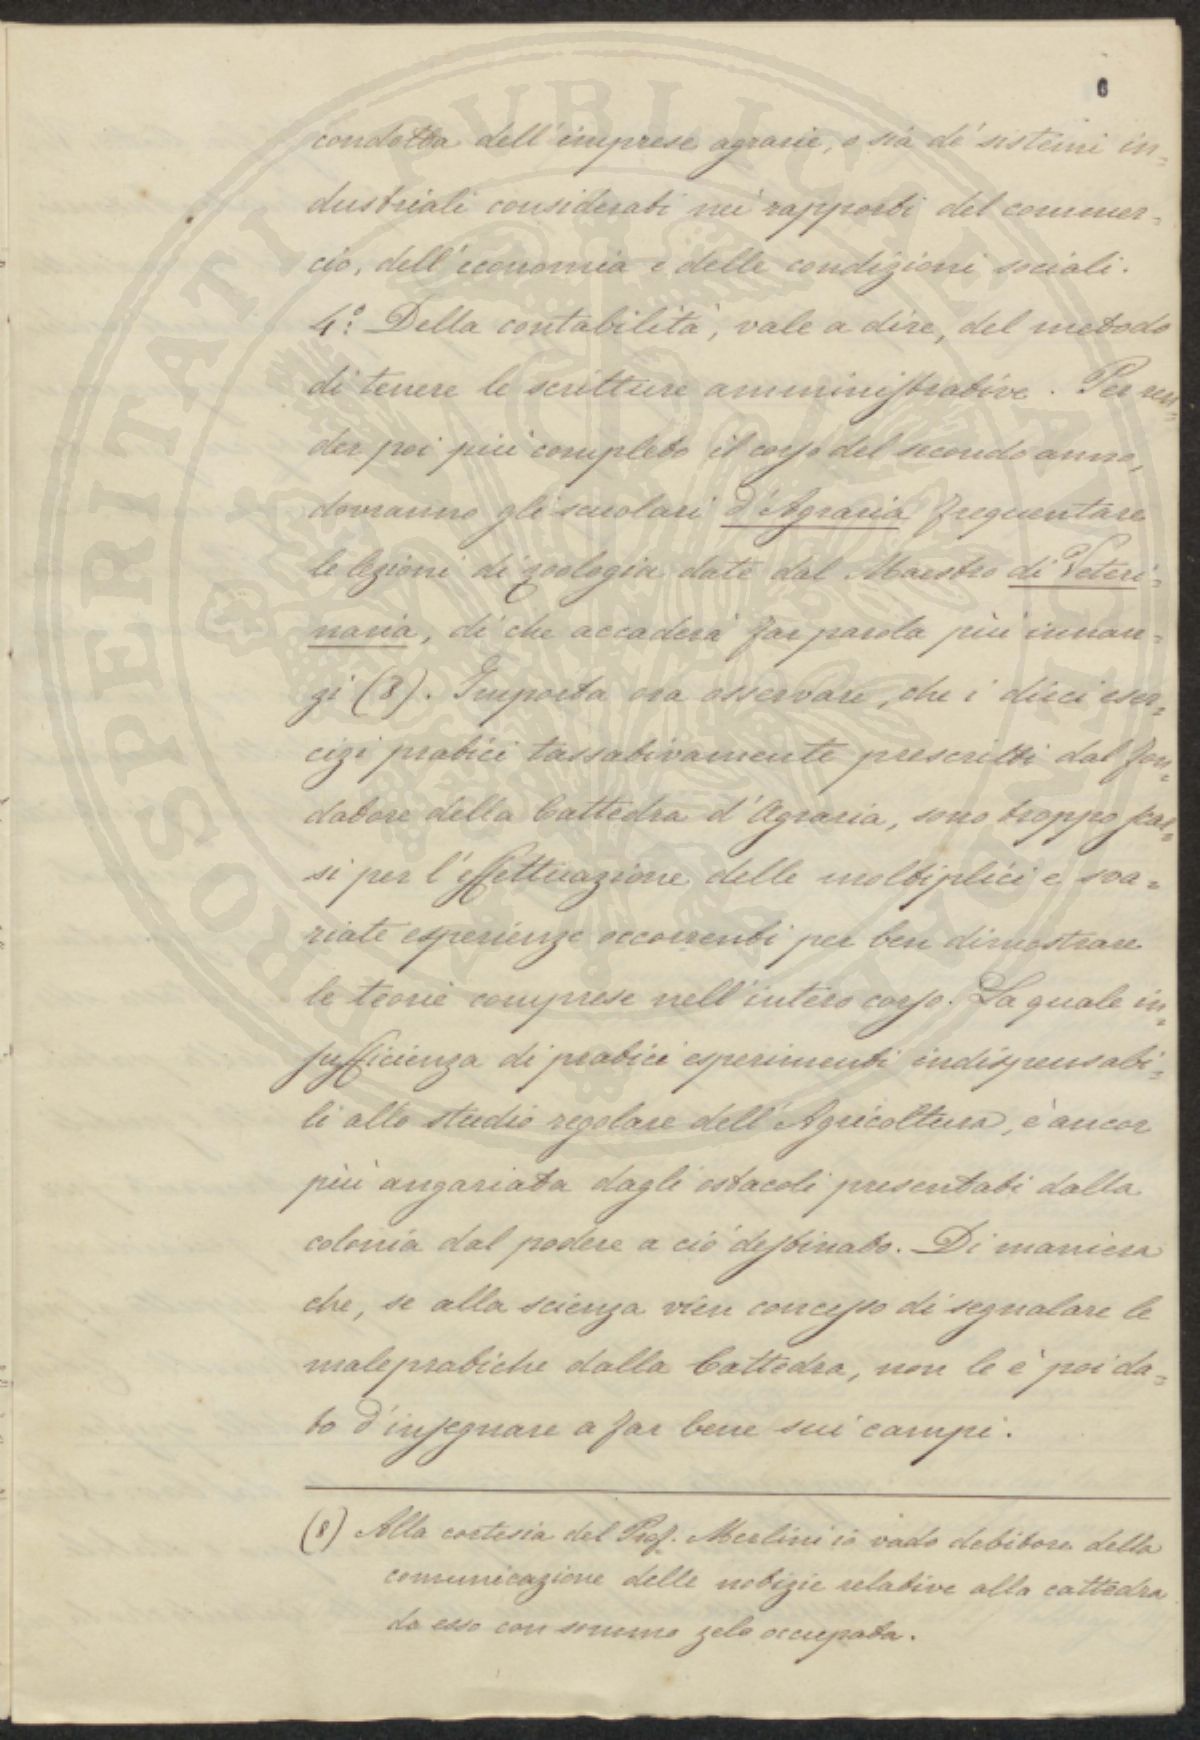 6
condotta dell'imprese agrarie, o sia de' sistemi in=
dustriali considerati nei rapporti del commer=
cio, dell'economia e delle condizioni sociali.
4.° Della contabilità, vale a dire, del metodo
di tenere le scritture amministrative. Per ren=
der poi più completo il corso del secondo anno,
dovranno gli scuolari d'Agraria frequentare
le lezioni di zoologia date dal Maestro di Veteri=
naria, di che accaderà far parola più innan=
zi (8). Importa ora osservare, che i dieci eser=
cizi pratici tassativamente prescritti dal fon=
datore della Cattedra d'Agraria, sono troppo scar=
si per l'effettuazione delle moltiplici e sva=
riate esperienze occorrenti per ben dimostrare
le teorie comprese nell'intero corso. La quale in=
sufficienza di pratici esperimenti indispensabi=
li allo studio regolare dell'Agricoltura, è ancor
più angariata dagli ostacoli presentati dalla
colonia dal podere a ciò destinato. Di maniera
che, se alla scienza vien concesso di segnalare le
malepratiche dalla Cattedra, non le è poi da=
to d'insegnare a far bene sui campi.
(8) Alla cortesia del Prof. Merlini io vado debitore della
comunicazione delle notizie relative alla cattedra
da esso con sommo zelo occupata.
PROSPERITATI PUBLICAE AUGENDAE